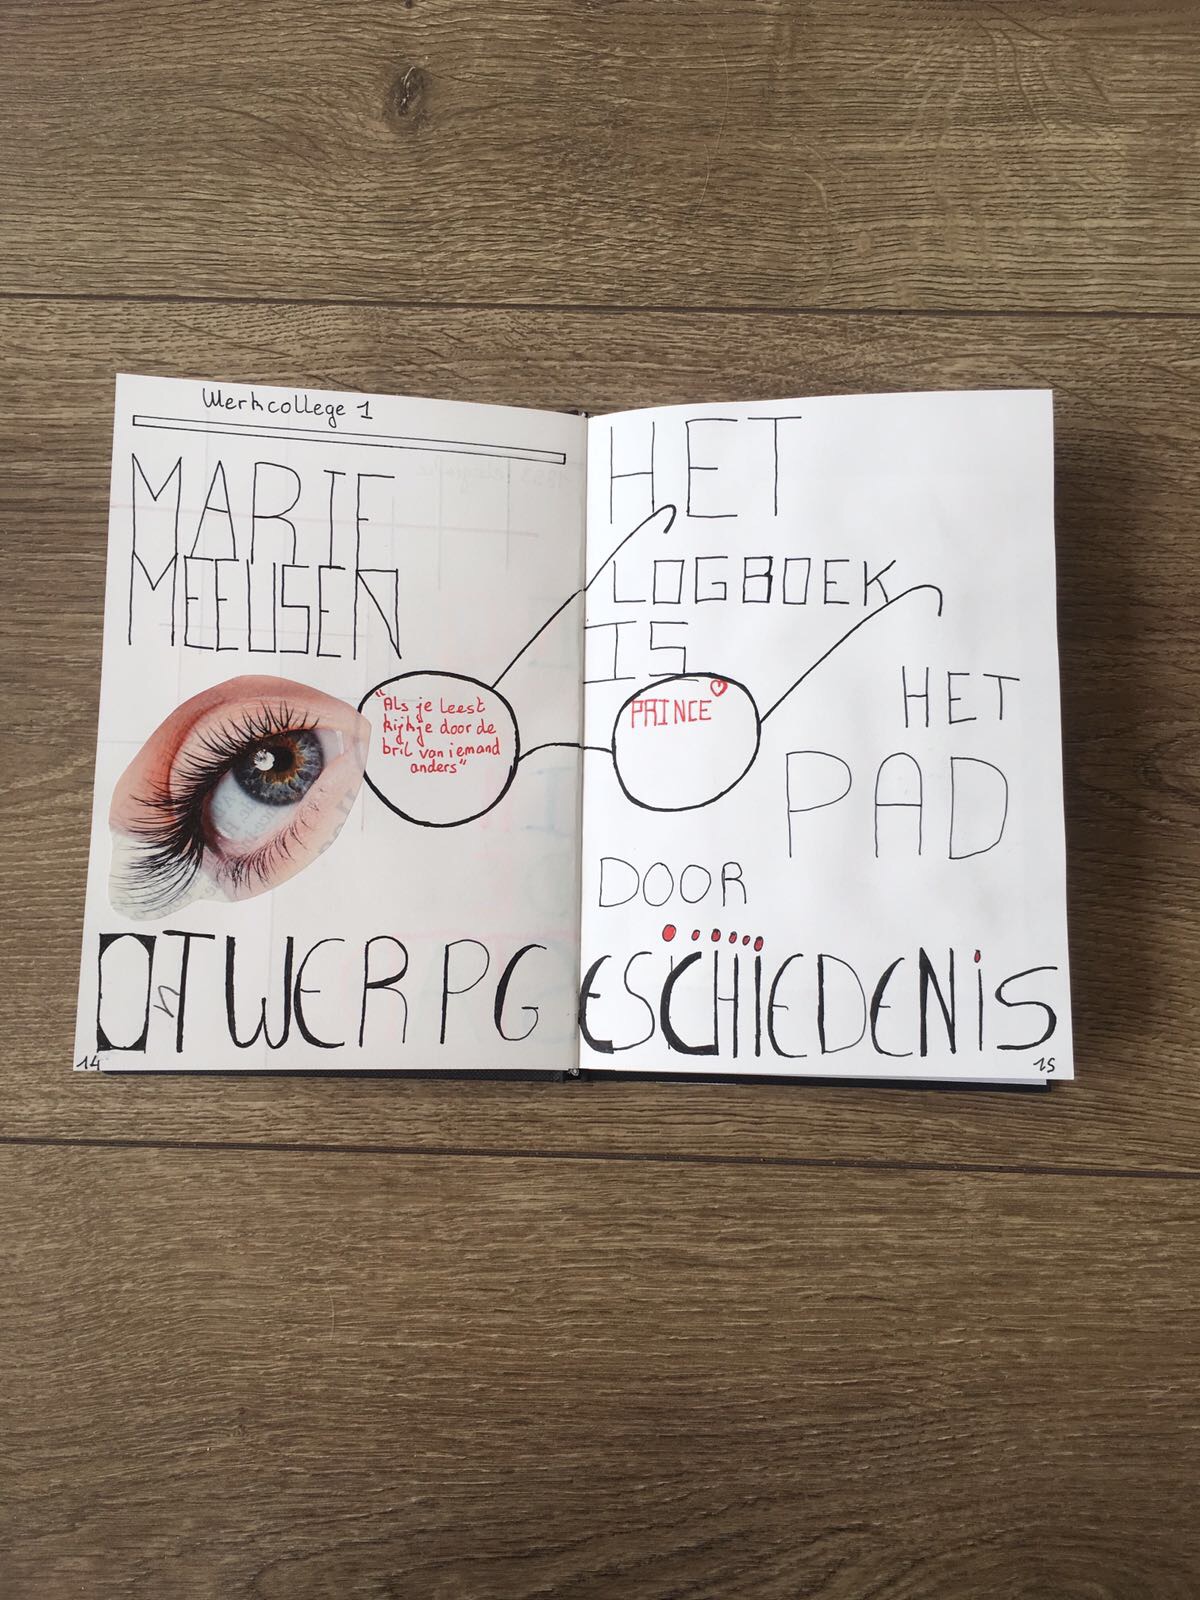 Werkcollege 1
MARIE
MEEUSEN
"Als je leest
kijk je door de
bril van iemand
anders"
HET
LOGBOEK
IS
PRINCE
HET
PAD
DOOR
OnTWERPGESCHIEDENiS
14
15